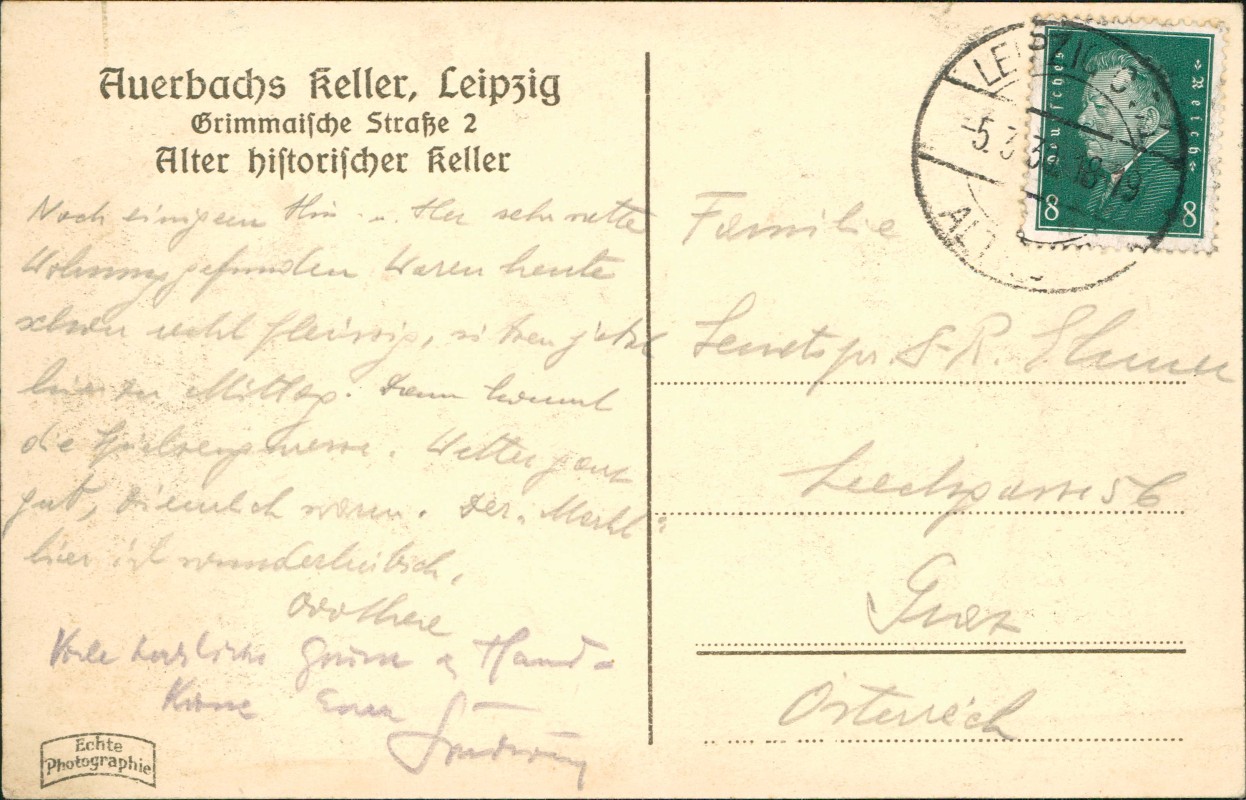 Auerbachs Keller, Leipzig
Grimmaische Straße 2
Alter historischer Keller
Nach einigem Hin- u. Her sehr nette
Wohnung gefunden Waren heute
schon recht fleissig, sitzen jetzt
hier zu Mittag. Dann kommt
die Spielzeugmesse. Wetter ganz
gut, ziemlich warm. Der "Markt"
hier ist wunderhübsch.
Dorothee
Viele herzliche Grüsse u Hand-
Küsse Euer
Echte
Photographie
Deutsches Reich
8 8
LEIPZIG C
-5.3.3 18-19
Familie
Leechgasse 56
Graz
Österreich